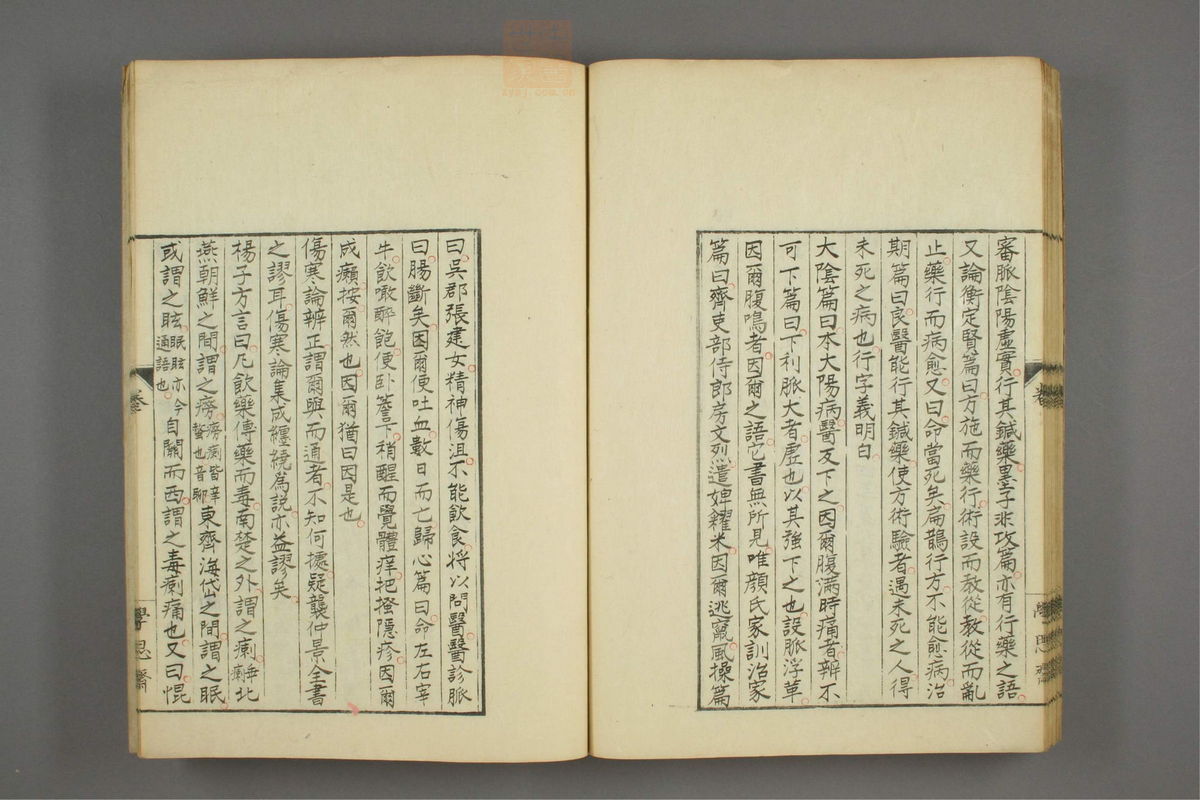 審脈陰陽虛實行其鍼藥墨子非攻篇亦有行藥之語
又論衡定賢篇曰方施而藥行術設而教從教從而亂
止藥行而病愈又曰命當死矣扁鵲行方不能愈病治
期篇曰良醫能行其鍼藥使方術驗者遇未死之人得
未死之病也行字義明白
大陰篇曰本大陽病醫反下之因爾腹滿時痛者辨不
可下篇曰下利脈大者虛也以其強下之也設脈浮革
因爾腹鳴者因爾之語它書無所見唯顏氏家訓治家
篇曰齊吏部侍郎房文烈遣婢糴米因爾逃竄風操篇
曰吳郡張建女精神傷沮不能飲食將以問醫醫診脈
曰腸斷矣因爾便吐血數日而亡歸心篇曰命左右宰
牛飲噉醉飽便卧簷下稍醒而覺體痒把搔隱疹因爾
成癩按爾然也因爾猶曰因是也
傷寒論辨正謂爾與而通者不知何據疑襲仲景全書
之謬耳傷寒論集成纏繞為説亦益謬矣
楊子方言曰凡飲藥傅藥而毒南楚之外謂之瘌北
燕朝鮮之間謂之癆癆瘌皆辛螫也音聊東齊海岱之間謂之眠
或謂之眩眠眩亦今通語也自關而西謂之毒瘌痛也又曰愠
卷
學思齋